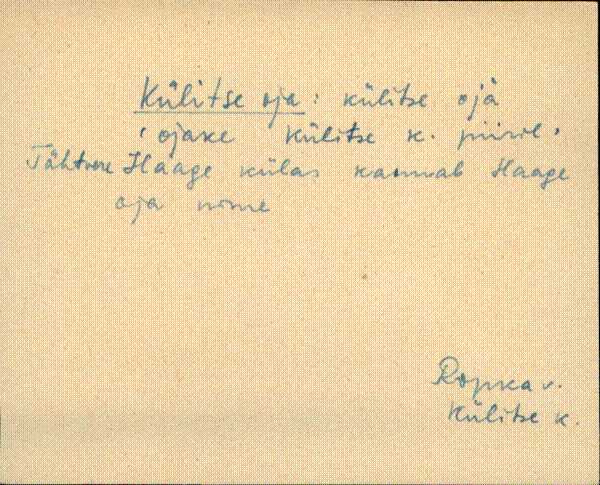 Külitse oja : külitse ojà
' ojake Külitse k. piiril,
Tähtvere Haage külas kannab Haage
oja nime
Ropka v.
Külitse k.